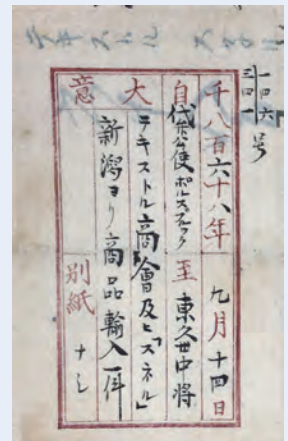 一四六
三四一号
千八百六十八年 九月十四日
自 公使ポルスブルック 至 東久世中将
大意
テキストル商會及ヒ「スネル」
新潟ヨリ商品輸入一件
別紙 ナシ